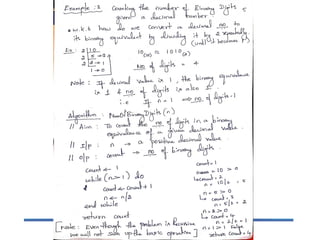 Example : 2 Counting the number of Binary Digits
given a decimal number.
* w.k.t how do we convert a decimal no to
its binary equivalent by dividing it by 2 repeatedly.
(until 1 becomes 1)
Ex: 2 | 10
2 | 5 → 0
2 | 2 → 1
1 → 0
10(10) = 1010(2)
No of digits = 4
Note : If decimal value is 1, the binary equivalent
is 1 & no of digits is also 1.
i.e If n = 1 ⇒ no of digits - 1
Algorithm : NumOfBinaryDigits (n)
// Aim : To count the no of digits in a binary
equivalence of a given decimal value.
// I/p : n → a positive decimal value
// O/p : count → no of binary digits.
count ← 1
while (n > 1) do
count ← count + 1
n ← n/2
end while
return count
count = 1
10 > 1
count = 2
n = 10/2 = 5
n = 5 > 0
count = 3
n = 5/2 = 2
n = 2 > 0
count = 4
n = 2/2 = 1
n = 1 > 1 False
return count = 4
[Note : Even though the problem is Recursive
we will not sum up the basic operation]